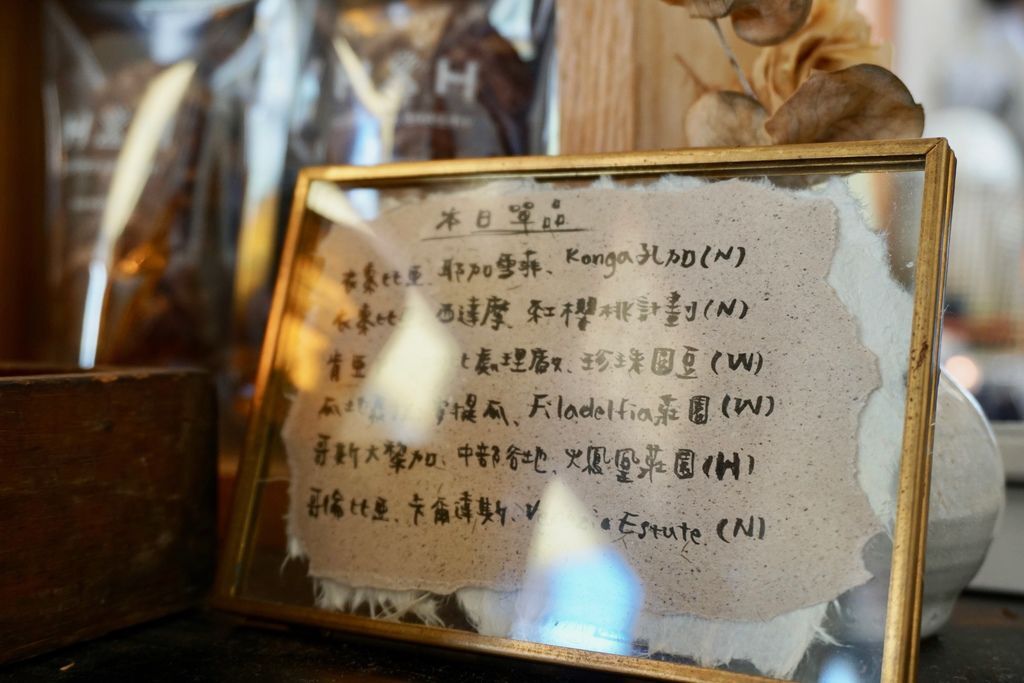 本日單品
衣索比亞、耶加雪菲、Konga孔加(N)
衣索比 西達摩、紅櫻桃計劃(N)
肯亞 處理廠、珍珠圓豆(W)
瓜地 提瓜、Filadelfia莊園(W)
哥斯大黎加、中部谷地、火鳳凰莊園(H)
哥倫比亞、卡爾達斯、 Estute (N)